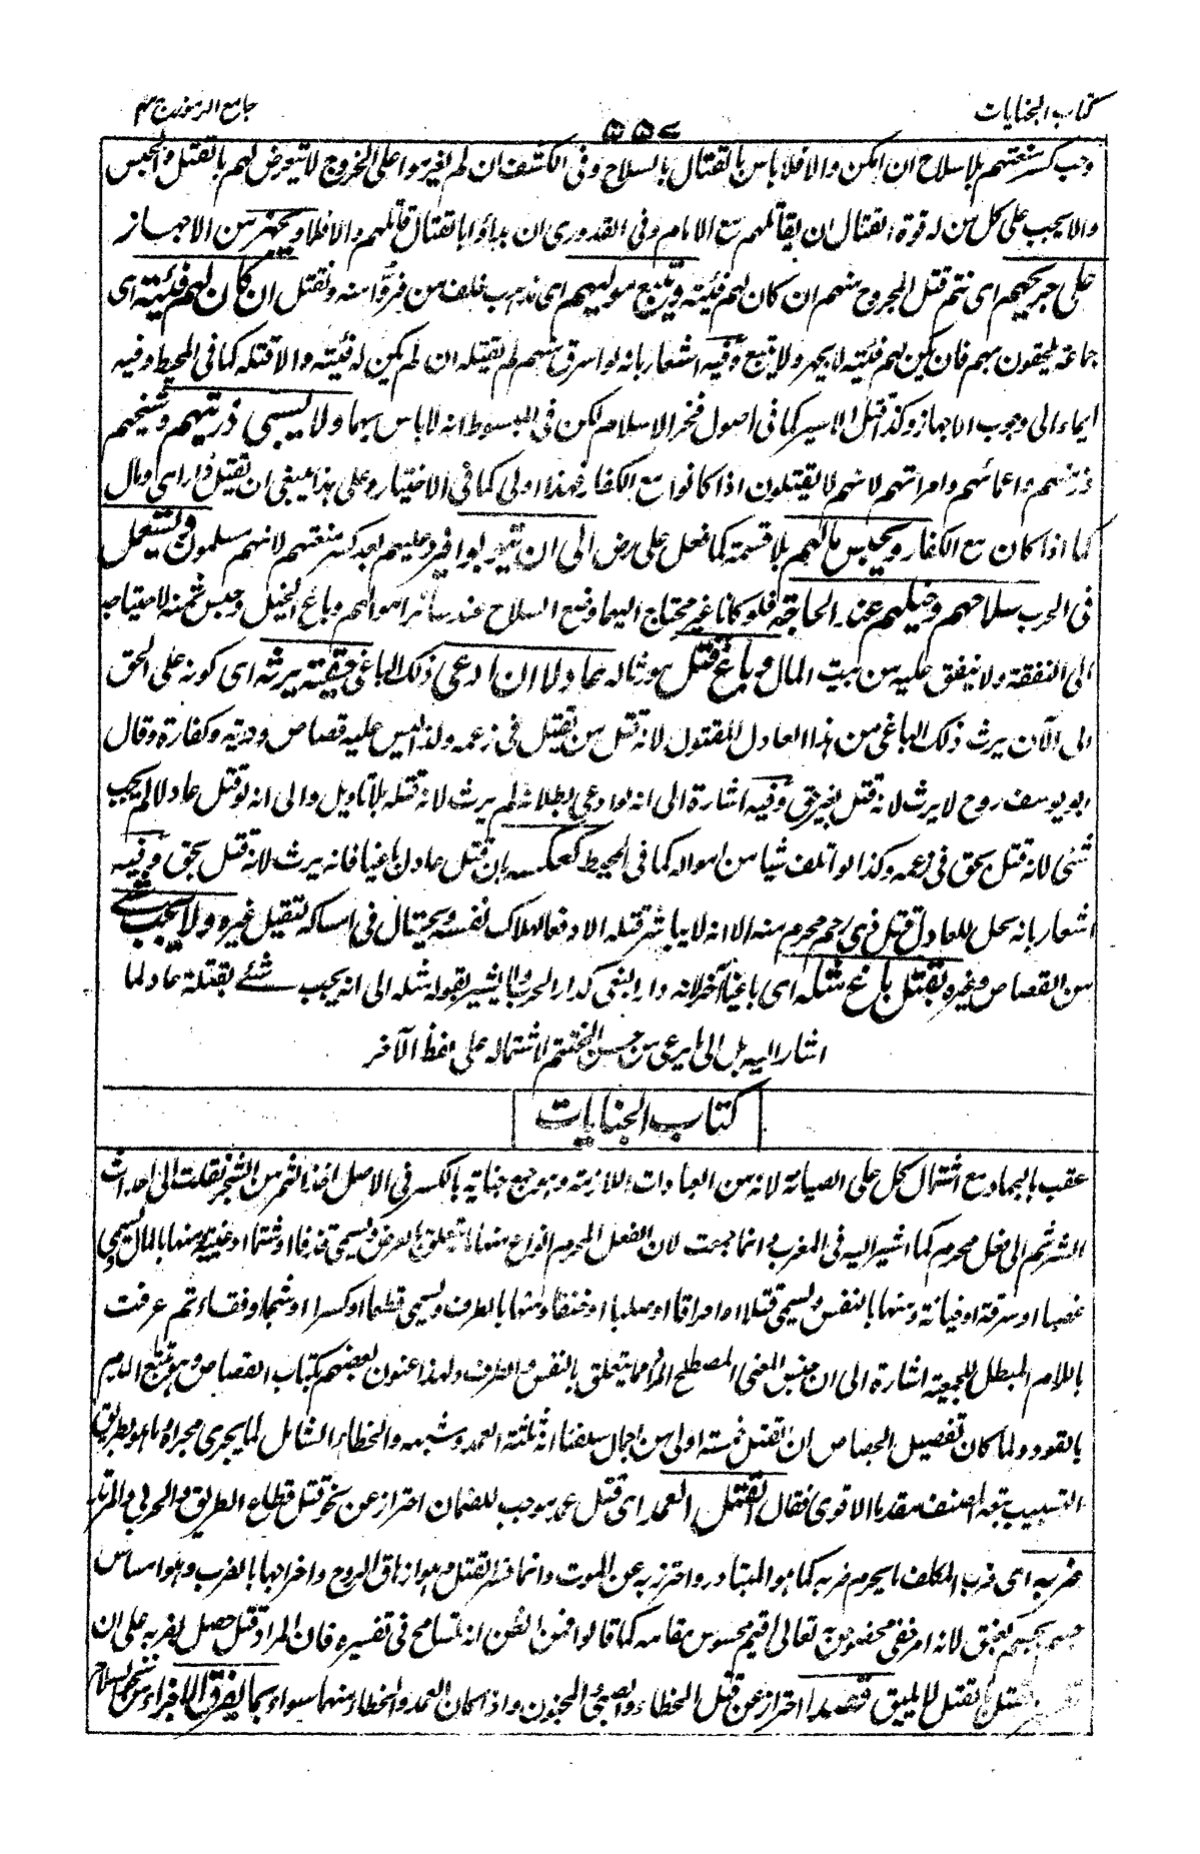 كتاب الجنايات
٥٥٧
جامع الرموز ج ٣
وجب كسر منعتهم بلا سلاح ان امكن والا فلا باس بالقتال بالسلاح وفى الكشف ان لم يعزموا على الخروج لا يتعرض لهم بالقتل والحبس
والا يجب على كل من له قوة القتال ان يقاتلهم مع الامام وفى القدورى ان بداؤا بالقتال قاتلهم والا فلا ويجهز من الاجهاز
على جريحهم اى يتم قتل المجروح منهم ان كان لهم فئة ويتبع موليهم اى يذهب خلف من فر منه ويقتل ان كان لهم فئة اى
جماعة يلحقون بهم فان لم يكن لهم فئة لا يجهز ولا يتبع وفيه اشعار بانه لو اسر منهم لم يقتله ان لم يكن له فئة والا قتله كما فى المحيط وفيه
ايماء الى وجوب الاجهاز وكذا قتل الاسير كما فى اصول فخر الاسلام لكن فى المبسوط انه لا باس بهما ولا يسبى ذريتهم وشيخهم
وزمنهم واعمائهم وامراتهم لانهم لا يقتلون اذا كانوا مع الكفار فهذا اولى كما فى الاختيار وعلى هذا ينبغى ان يقتل ذو راى ومال
كما اذا كان مع الكفار ويحبس مالهم بلا قسمة كما فعل على رض الى ان يتوبوا فيرد عليهم بعد كسر منعتهم لانهم مسلمون ويستعمل
فى الحرب سلاحهم وخيلهم عند الحاجة فلو كانا غير محتاج اليهما وضع السلاح عند سائر اموالهم وباع الخيل وحبس ثمنه لاحتياجه
الى النفقة ولا ينفق عليه من بيت المال وباغ قتل مورثاله عادلا ان ادعى ذلك الباغى حقيته يرثه اى كونه على الحق
الى الآن يرث ذلك الباغى من هذا العادل المقتول لانه قتل من يقتل فى زعمه ولذا ليس عليه قصاص ودية وكفارة وقال
ابو يوسف رح لا يرث لانه قتل بغير حق وفيه اشارة الى انه لو ادعى بطلانه لم يرث لانه قتله بلا تاويل والى انه لو قتل عادلا لم يجب
شئ لانه قتل بحق فى زعمه وكذا لو اتلف شيا من امواله كما فى المحيط كعكسه بان قتل عادل باغيا فانه يرث لانه قتل بحق وفيه
اشعار بانه يحل للعادل قتل ذى رحم محرم منه الا انه لا يباشر قتله الا دفعا لهلاك نفسه ويحتال فى امساكه ليقتل غيره ولا يجب شئ
من القصاص وغيره بقتل باغ مثله اى باغيا آخر لانه دار البغى كدار الحرب يشير بقوله مثله الى انه يجب شئ بقتله عادلا
اشار اليه بل الى ما يرعى من حسن المختتم لاشتماله على لفظ الآخر
كتاب الجنايات
عقب بالجهاد مع اشتمال كل على الصيانة لانه من العبادات اللازمة وهو جمع جناية بالكسر فى الاصل اخذ الثمر من الشجر نقلت الى احداث
الشر ثم الى فعل محرم كما اشير اليه فى المغرب انما جمعت لان الفعل المحرم انواع منها ما تعلق بالعرض ويسمى قذفا او شتما او غيبة ومنها بالمال ويسمى
غصبا او سرقة او خيانة ومنها بالنفس ويسمى قتلا او احراقا او صلبا او خنقا ومنها بالطرف ويسمى قطعا او كسرا او شجا وفقاء ثم عرفت
باللام المبطل للجمعية اشارة الى ان سبق المعنى المصطلح المراد ما يتعلق بالنفس والطرف ولهذا عنون بعضهم بكتاب القصاص وهو يتبع الدم
بالقود ولما كان تفصيل الجصاص ان القتل خمسة اولى من اجمال سلفنا انه ثلثة العمد وشبهه والخطاء الشامل لما يجرى مجراه وما هو بطريق
التسبيب تبعه المصنف مقدما الاقوى فقال القتل العمد اى قتل عمد موجب للضمان احتراز عن نحو قتل قطاع الطريق والحربى والمرتد
ضربه اى ضرب المكلف ما يحرم ضربه كما هو المتبادر واحترز به عن الموت وانما فسر القتل وهو ازهاق الروح واخراجها بالضرب وهو امساس
جسم بجسم بعنق لانه امر خفى مخصوص به تعالى اقيم محسوس مقامه كما قالوا فمن الظن انه تسامح فى تفسيره فان المراد قتل حصل بضربه على ان
القتل لا يليق قصدا احتراز عن قتل الخطاء والصبى والمجنون واذا كان العمد والخطاء منهما سواء بما يفرق الاجزاء من نحو السلاح